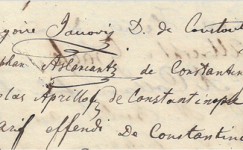 goire Janovis D. de Constan
phan Aslanantz de Constantin
olas Aprilloff de Constantinople
arif effendi De Constantino